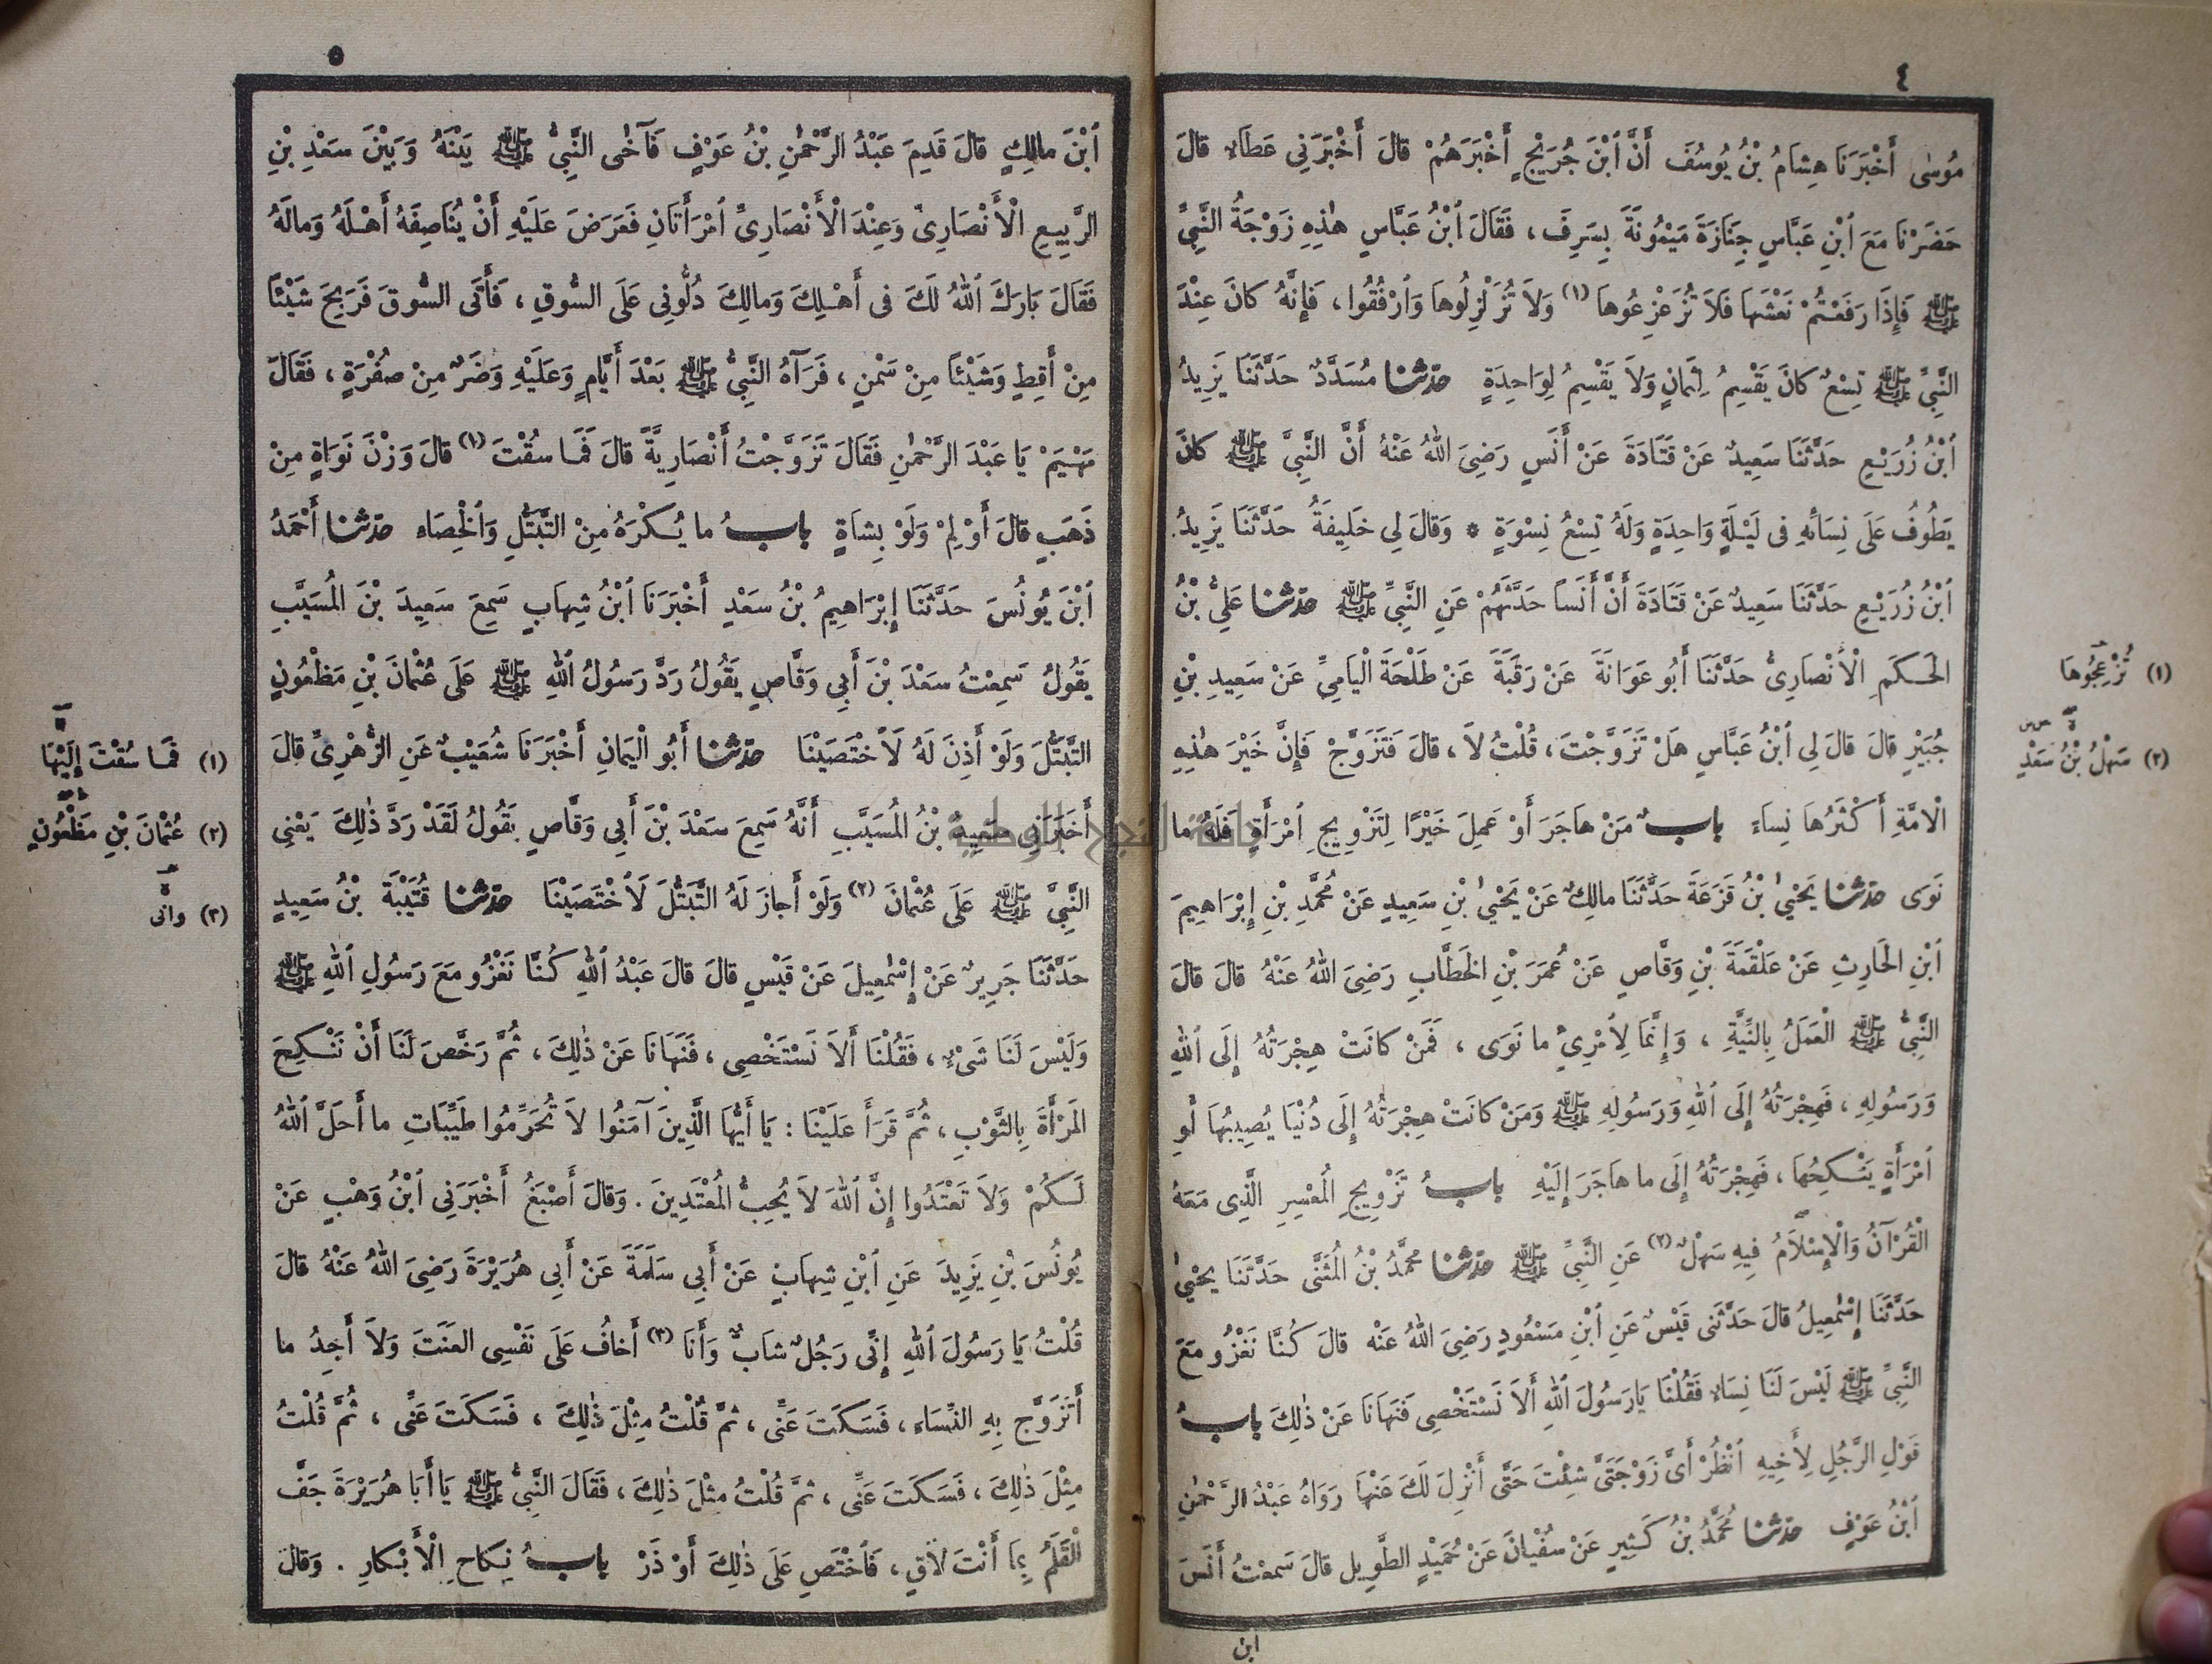 ٤
مُوسٰى أَخْبَرَنَا هِشَامُ بْنُ يُوسُفَ أَنَّ ٱبْنَ جُرَيْجٍ أَخْبَرَهُمْ قالَ أَخْبَرَنِى عَطَاءٌ قالَ
حَضَرْنَا مَعَ ٱبْنِ عَبَّاسٍ جِنَازَةَ مَيْمُونَةَ بِسَرِفَ ، فَقَالَ ٱبْنُ عَبَّاسٍ هٰذِهِ زَوْجَةُ النَّبِىِّ
ﷺ فَإِذَا رَفَعْتُمْ نَعْشَهَا فَلاَ تُزَعْزِعُوهَا (١) وَلاَ تُزَلْزِلُوهَا وَٱرْفُقُوا ، فَإِنَّهُ كانَ عِنْدَ
النَّبِىِّ ﷺ تِسْعٌ كانَ يَقْسِمُ لِثَمَانٍ وَلاَ يَقْسِمُ لِوَاحِدَةٍ حدّثنا مُسَدَّدٌ حَدَّثَنَا يَزِيدُ
ٱبْنُ زُرَيْعٍ حَدَّثَنَا سَعِيدٌ عَنْ قَتَادَةَ عَنْ أَنَسٍ رَضِىَ اللهُ عَنْهُ أَنَّ النَّبِىَّ ﷺ كانَ
يَطُوفُ عَلَى نِسَائِهِ فى لَيْلَةٍ وَاحِدَةٍ وَلَهُ تِسْعُ نِسْوَةٍ * وَقالَ لِى خَلِيفَةُ حَدَّثَنَا يَزِيدُ
ٱبْنُ زُرَيْعٍ حَدَّثَنَا سَعِيدٌ عَنْ قَتَادَةَ أَنَّ أَنَساً حَدَّثَهُمْ عَنِ النَّبِىِّ ﷺ حدّثنا عَلِىُّ بْنُ
الْحَكَمِ الْأَنْصَارِىُّ حَدَّثَنَا أَبُو عَوَانَةَ عَنْ رَقَبَةَ عَنْ طَلْحَةَ الْيَامِىِّ عَنْ سَعِيدِ بْنِ
جُبَيْرٍ قالَ قالَ لِى ٱبْنُ عَبَّاسٍ هَلْ تَزَوَّجْتَ ، قُلْتُ لاَ ، قالَ فَتَزَوَّجْ فَإِنَّ خَيْرَ هٰذِهِ
الْامَّةِ أَكْثَرُهَا نِساءَ بابٌ مَنْ هاجَرَ أَوْ عَمِلَ خَيْرًا لِتَزْوِيجِ ٱمْرَأَةٍ فَلَهُ ما
نَوَى حدّثنا يَحْيىٰ بْنُ قَزَعَةَ حَدَّثَنَا مالِكٌ عَنْ يَحْيىٰ بْنِ سَعِيدٍ عَنْ مُحَمَّدِ بْنِ إِبْرَاهِيمَ
ٱبْنِ الحَارِثِ عَنْ عَلْقَمَةَ بْنِ وَقَّاصٍ عَنْ عُمَرَ بْنِ الخَطَّابِ رَضِىَ اللهُ عَنْهُ قالَ قالَ
النَّبِىُّ ﷺ الْعَمَلُ بِالنِّيَّةِ ، وَإِنَّمَا لِٱمْرِئٍ ما نَوَى ، فَمَنْ كانَتْ هِجْرَتُهُ إِلَى اللهِ
وَرَسُولِهِ ، فَهِجْرَتُهُ إِلَى اللهِ وَرَسُولِهِ ﷺ وَمَنْ كانَتْ هِجْرَتُهُ إِلَى دُنْيَا يُصِيبُهَا أَوِ
ٱمْرَأَةٍ يَنْكِحُهَا ، فَهِجْرَتُهُ إِلَى ما هَاجَرَ إِلَيْهِ بابُ تَزْوِيجِ الْمُعْسِرِ الَّذِى مَعَهُ
الْقُرْآنُ وَالْإِسْلاَمُ فِيهِ سَهْلٌ (٢) عَنِ النَّبِىِّ ﷺ حدّثنا مُحَمَّدُ بْنُ الْمُثَنَّى حَدَّثَنَا يحْيىٰ
حَدَّثَنَا إِسْمٰعِيلُ قالَ حَدَّثَنى قَيْسٌ عَنِ ٱبْنِ مَسْعُودٍ رَضِىَ اللهُ عَنْه قالَ كُنَّا نَغْزُو مَعَ
النَّبِىِّ ﷺ لَيْسَ لَنَا نِسَاءٌ فَقُلْنَا يَارَسُولَ اللهِ أَلاَ نَسْتَخْصِى فَنَهَانَا عَنْ ذٰلِكَ بابُ
قَوْلِ الرَّجُلِ لِأَخِيهِ ٱنْظُرْ أَىَّ زَوْجَتَىَّ شِئْتَ حَتَّى أَنْزِلَ لَكَ عَنْهَا رَوَاهُ عَبْدُ الرَّحْمٰنِ
ٱبْنُ عَوْفٍ حدّثنا مُحَمَّدُ بْنُ كَثِيرٍ عَنْ سُفْيَانَ عَنْ حُمَيْدٍ الطَّوِيلِ قالَ سَمِعْتُ أَنَسَ
ابن
(١) تُزْعِجُوهَا
(٢) سَهْلُ بْنُ سَعْدٍ
٥
ٱبْنَ مالِكٍ قالَ قَدِمَ عَبْدُ الرَّحْمٰنِ بْنُ عَوْفٍ فَآخٰى النَّبِىُّ ﷺ بَيْنَهُ وَبَيْنَ سَعْدِ بْنِ
الرَّبِيعِ الْأَنْصَارِىِّ وَعِنْدَ الْأَنْصَارِىِّ ٱمْرَأَتَانِ فَعَرَضَ عَلَيْهِ أَنْ يُنَاصِفَهُ أَهْلَهُ وَمالَهُ
فَقَالَ بَارَكَ اللهُ لَكَ فى أَهْلِكَ وَمالِكَ دُلُّونِى عَلَى السُّوقِ ، فَأَتَى السُّوقَ فَرَبِحَ شَيْئًا
مِنْ أَقِطٍ وَشَيْئًا مِنْ سَمْنٍ ، فَرَآهُ النَّبِىُّ ﷺ بَعْدَ أَيَّامٍ وَعَلَيْهِ وَضَرٌ مِنْ صُفْرَةٍ ، فَقَالَ
مَهْيَمْ يَا عَبْدَ الرَّحْمٰنِ فَقَالَ تَزَوَّجْتُ أَنْصَارِيَّةً قالَ فَمَا سُقْتَ (١) قالَ وَزْنَ نَوَاةٍ مِنْ
ذَهَبٍ قالَ أَوْلِمْ وَلَوْ بِشاَةٍ بابُ ما يُكْرَهُ مِنَ التَّبَتُّلِ وَٱلْخِصَاءِ حدّثنا أَحْمَدُ
ٱبْنَ يُونُسَ حَدَّثَنَا إِبْرَاهِيمُ بْنُ سَعْدٍ أَخْبَرَنَا ٱبْنُ شِهَابٍ سَمِعَ سَعِيدَ بْنَ الْمُسَيَّبِ
يَقُولُ سَمِعْتُ سَعْدَ بْنَ أَبِى وَقَّاصٍ يَقُولُ رَدَّ رَسُولُ اللهِ ﷺ عَلَى عُثْمانَ بْنِ مَظْعُونٍ
التَّبَتُّلَ وَلَوْ أَذِنَ لَهُ لَاخْتَصَيْنَا حدّثنا أَبُو الْيَمَانِ أَخْبَرَنَا شُعَيْبٌ عَنِ الزُّهْرِىِّ قالَ
أَخْبَرَنِى سَعِيدُ بْنُ الْمُسَيَّبِ أَنَّهُ سَمِعَ سَعْدَ بْنَ أَبِى وَقَّاصٍ يَقُولُ لَقَدْ رَدَّ ذٰلِكَ يَعْنِى
النَّبِىَّ ﷺ عَلَى عُثْمَانَ (٢) وَلَوْ أَجازَ لَهُ التَّبَتُّلَ لَاخْتَصَيْنَا حدّثنا قُتَيْبَةُ بْنُ سَعِيدٍ
حَدَّثَنَا جَرِيرٌ عَنْ إِسْمٰعِيلَ عَنْ قَيْسٍ قالَ قالَ عَبْدُ اللهِ كُنَّا نَغْزُو مَعَ رَسُولِ اللهِ ﷺ
وَلَيْسَ لَنَا شَىْءٌ ، فَقُلْنَا أَلاَ نَسْتَخْصِى ، فَنَهَانَا عَنْ ذٰلِكَ ، ثُمَّ رَخَّصَ لَنَا أَنْ نَنْكِحَ
المَرْأَةَ بِالثَّوْبِ ، ثُمَّ قَرَأَ عَلَيْنَا : يَا أَيُّهَا الَّذِينَ آمَنُوا لاَ تُحَرِّمُوا طَيِّبَاتِ ما أَحَلَّ اللهُ
لَكُمْ وَلاَ تَعْتَدُوا إِنَّ اللهَ لاَ يُحِبُّ الْمُعْتَدِينَ . وَقالَ أَصْبَغُ أَخْبَرَنِى ٱبْنُ وَهْبٍ عَنْ
يُونُسَ بْنِ يَزِيدَ عَنِ ٱبْنِ شِهَابٍ عَنْ أَبِى سَلَمَةَ عَنْ أَبِى هُرَيْرَةَ رَضِىَ اللهُ عَنْهُ قالَ
قُلْتُ يَا رَسُولَ اللهِ إِنِّى رَجُلٌ شَابٌّ وَأَنَا (٣) أَخافُ عَلَى نَفْسِى الْعَنَتَ وَلاَ أَجِدُ ما
أَتَزَوَّج بِهِ النِّسَاءَ ، فَسَكَتَ عَنِّى ، ثُمَّ قُلْتُ مِثْلَ ذٰلِكَ ، فَسَكَتَ عَنِّى ، ثُمَّ قُلْتُ
مِثْلَ ذٰلِكَ ، فَسَكَتَ عَنِّى ، ثُمَّ قُلْتُ مِثْلَ ذٰلِكَ ، فَقَالَ النَّبِىُّ ﷺ يَا أَبَا هُرَيْرَةَ جَفَّ
الْقَلَمُ بِمَا أَنْتَ لاَقٍ ، فَٱخْتَصِ عَلَى ذٰلِكَ أَوْ ذَرْ بابُ نِكاحِ الْأَبْكارِ . وَقالَ
(١) فَمَا سُقْتَ إِلَيْهَا
(٢) عُثْمَانَ بْنِ مَظْعُونٍ
(٣) وانى